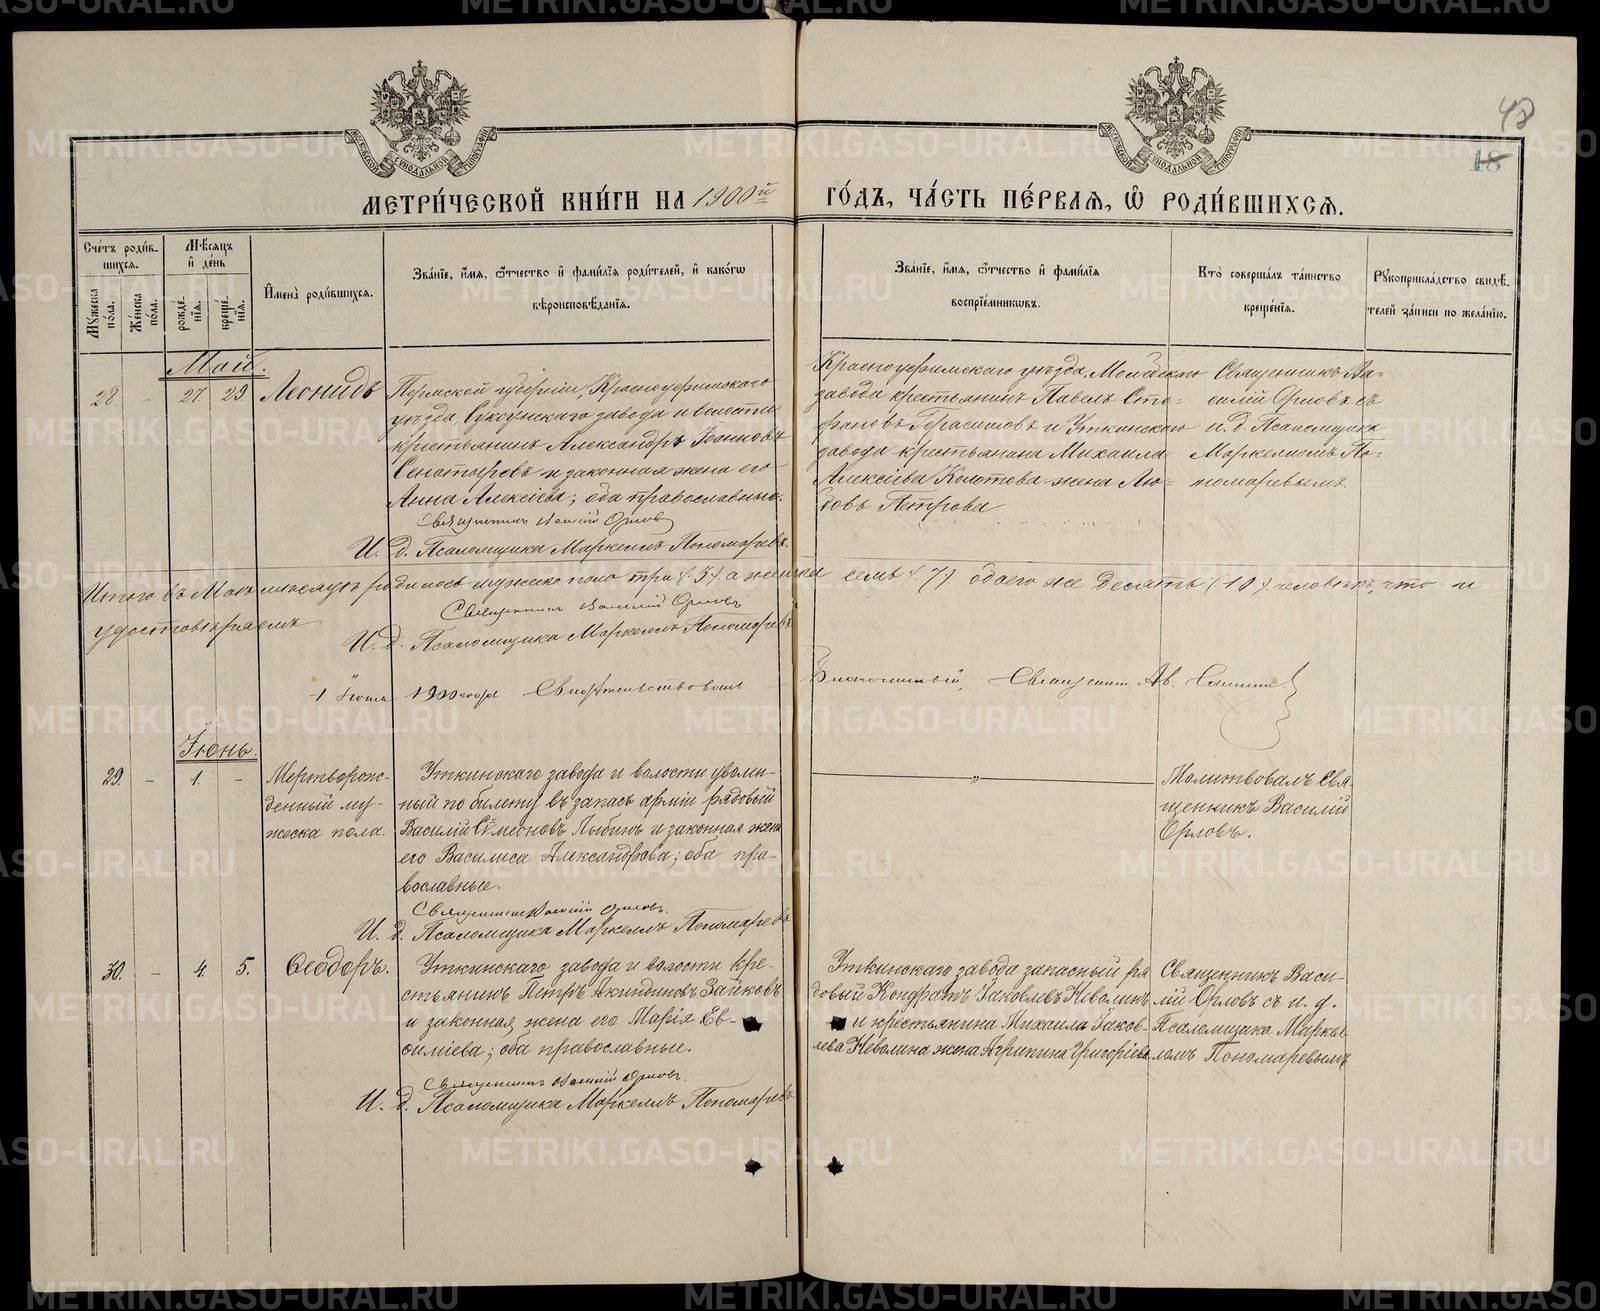 48
18
МОСКОВСКОЙ СУНОДАЛЬНОЙ ТИПОГРАФІИ
МОСКОВСКОЙ СУНОДАЛЬНОЙ ТИПОГРАФІИ
МЕТРИ́ЧЕСКОЙ КНИ́ГИ НА 1900й ГО́ДЪ, ЧА́СТЬ ПЕ́РВАѦ, Ѡ҆ РОДИ́ВШИХСѦ.
Сче́тъ роди́в-
шихся.
Мꙋжеска по́ла.
Же́нска по́ла.
Мѣ́сяцъ и҆ де́нь
рожде́-нїя.
креще́-нїя.
И҆мена̀ роди́вшихся.
Зва́нїе, и҆́мя, ѻ҆́тчество и҆ фами́лїя роди́телей, и҆ како́гѡ
вѣроисповѣ́данїя.
Зва́нїе, и҆́мя, ѻ҆́тчество и҆ фами́лїя
воспрїе́мникѡвъ.
Кто̀ соверша́лъ та́инство
креще́нїя.
Рꙋкоприкла́дство свидѣ́-
телей за́писи по жела́нїю.
Май.
28 - 27 29 Леонидъ
Пермской губерніи, Красноуфимскаго
уѣзда, Суксунскаго завода и волости
крестьянинъ Александръ Іоанновъ
и законная жена его
Анна Алексіева; оба православные.
Священникъ Василій Орловъ
И. д. Псаломщика Маркеллъ Пономаревъ.
Красноуфимскаго уѣзда,
завода крестьянинъ Павелъ Сте-
фановъ Герасимовъ и Уткинскаго
завода крестьянина Михаила
Алексіева жена Лю-
бовь Петрова
Священникъ Ва-
силій Орловъ съ
и. д. Псаломщика
Маркелломъ По-
номаревымъ.
Итого въ Маѣ мѣсяцѣ родилось мужеска пола три (3) а женска семь (7) обоего же десять (10) человѣкъ, что и
удостовѣряемъ
Священникъ Василій Орловъ
И. д. Псаломщика Маркеллъ Пономаревъ
1 Іюня 1900 года. Свидѣтельствовалъ Благочинный, Священникъ Ав.
Іюнь.
29. - 1. - Мертворож-
денный му-
жеска пола.
Уткинскаго завода и волости уволен-
ный по билету въ запасъ арміи рядовый
Василій Симеоновъ и законная жена
его Василиса Александрова; оба пра-
вославные.
Священникъ Василій Орловъ.
И. д. Псаломщика Маркеллъ Пономаревъ
„
Молитвовалъ Свя-
щенникъ Василій
Орловъ.
30. - 4. 5. Ѳеодоръ.
Уткинскаго завода и волости кре-
стьянинъ Петръ Акиндиновъ Зайковъ
и законная жена его Марія Ев-
филіева; оба православные.
Священникъ Василій Орловъ.
И. д. Псаломщика Маркеллъ Пономаревъ
Уткинскаго завода запасный ря-
довый Кондратъ Іаковлевъ Неволинъ
и крестьянина Михаила Іаков-
лева Неволина жена Агрипина Григоріева
Священникъ Васи-
лій Орловъ съ и. д.
Псаломщика Маркел-
ломъ Пономаревымъ
METRIKI.GASO-URAL.RU